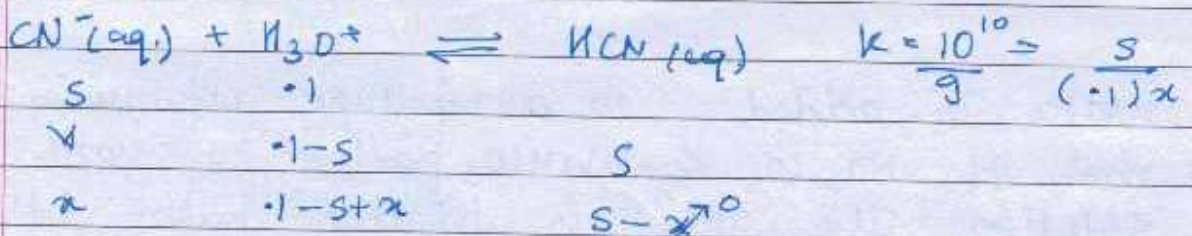 CN⁻(aq.) + H₃O⁺ ⇌ HCN(aq) K = 10¹⁰/9 = s/(·1)x
s ·1
·1-s s
x ·1-s+x s-x↗0